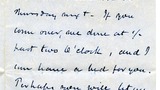 Thursday next - If you
come over, we dine at ½
past two o'clock, and I
can have a bed for you.
Perhaps men will let me